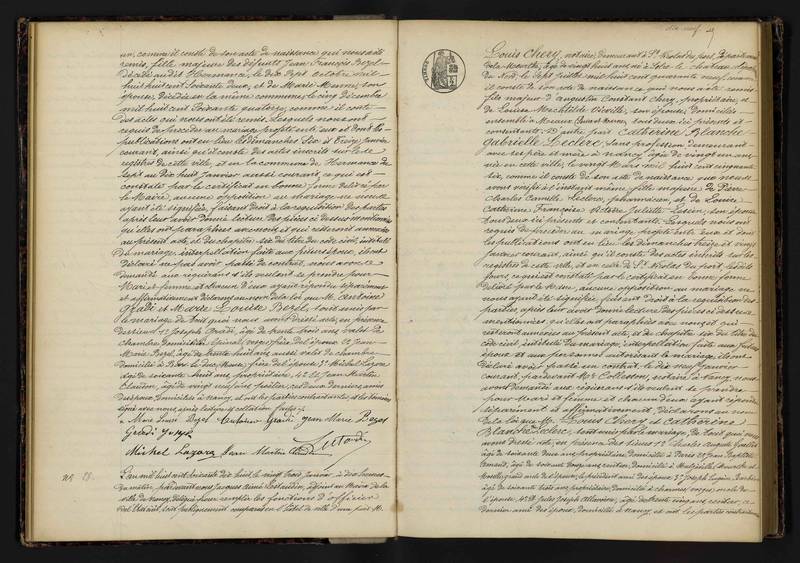 un, comme il conste de son acte de naissance qui nous a été
remis, fille majeure des défunts Jean François Bezel
décédé au dit Hermance, le dix sept octobre mil
huit huit cent soixante deux, et de Marie Mermex, son
épouse, décédée en la même commune, le cinq décembre
mil huit cent soixante quatorze, comme il conste
des actes qui nous ont été remis. Lesquels nous ont
requis de procéder au mariage projeté entre eux et dont les
publications ont eu lieu les dimanches six et treize janvier
courant, ainsi qu'il conste des actes inscrits sur le
registres de cette ville, et en la commune de Hermance
sept au dix huit janvier aussi courant, ce qui est
constaté par le certificat en bonne forme délivré par
le Maire, aucune opposition au mariage ne nous
ayant été signifiée, faisant droit à la réquisition des parties
après leur avoir donné lecture des pièces ci dessus mentionnées
qu'elles ont paraphées avec nous et qui resteront annexées
au présent acte, et du chapitre six du titre du code civil, intitulé
du mariage, interpellation faite aux futurs époux, ils ont
déclaré ne pas avoir passé de contrat, nous avons
demandé aux requérant s'ils veulent se prendre pour
Mari et femme et chacun d'eux ayant répondu séparément
et affirmativement déclarons au nom de la loi que M. Antoine
Gradi et Marie Louise Bezel, sont unis par
le mariage de tout quoi nous avons dressé acte, en présence
des sieurs 1° Joseph Gradi, âgé de trente trois ans valet de
chambre domicilié à Epinal, frère de l'époux 2° Jean
Marie Bezel, âgé de trente huit ans aussi valet de chambre
domicilié à Bar le duc, Meuse, frère de l'épouse 3° Michel Lazare
âgé de soixante huit ans propriétaire, 4° et Jean Martin
Claudon, âgé de vingt neuf ans, ces deux derniers, amis
des époux, domiciliés à Nancy, et ont les parties contractantes et les témoins
signé avec nous après lecture et collation faites.
Marie Louise Bezel Antoine Gradi Jean Marie Bezel
Gradi Joseph
Michel Lazare Jean Martin Claudon
N° 28.
L'an mil huit cent soixante dix huit, le vingt trois Janvier, à dix heures
du matin, pardevant nous Jacques Aimé, adjoint au Maire de la
ville de Nancy, délégué pour remplir les fonctions d'officier
de l'état civil, sont publiquement comparus en l'hôtel de ville d'une part M.
dix neuf 19
Louis Chery, notaire, demeurant à St Nicolas du port, département
de la Meurthe, âgé de vingt huit ans, né à
du Nord, le sept juillet mil huit cent quarante neuf, comme
il conste de son acte de naissance qui nous a été remis
fils majeur d'Augustin Constant Chery, propriétaire, et
de Louise Mathilde, son épouse, domiciliés
ensemble à Meaux, tous deux ici présents et
consentants. D'autre part Catherine Blanche
Gabrielle Leclerc, sans profession demeurant
avec ses père et mère à Nancy, âgée de vingt un ans
née en cette ville, le vingt mars mil huit cent cinquante
six, comme il conste de son acte de naissance que nous
avons vérifié à l'instant même, fille majeure de Pierre
Charles Camille Leclerc, pharmacien, et de Louise
Catherine Françoise Victoire Juliette, son épouse
tous deux ici présents et consentants. Lesquels nous ont
requis de procéder au mariage projeté entre eux et dont
les publications ont eu lieu les dimanches treize et vingt
janvier courant, ainsi qu'il conste des actes inscrits sur les
registres de cette ville, et en celle de St Nicolas du port, lesdits
jours, ce qui est constaté par le certificat en bonne forme
délivré par le Maire, aucune opposition au mariage ne
nous ayant été signifiée, faisant droit à la réquisition des
parties après leur avoir donné lecture des pièces ci dessus
mentionnées qu'elles ont paraphées avec nous et qui
resteront annexées au présent acte, et du chapitre six du titre du
code civil, intitulé du mariage, interpellation faite aux futurs
époux et aux personnes autorisant le mariage, ils ont
déclaré avoir passé un contrat, le dix neuf janvier
courant, pardevant Me Collesson, notaire à Nancy, nous
avons demandé aux requérant s'ils veulent se prendre
pour Mari et femme et chacun d'eux ayant répondu
séparément et affirmativement, déclarons au nom
de la loi que M. Louis Chery et Catherine
Blanche Leclerc, sont unis par le mariage. De tout quoi nous
avons dressé acte, en présence des sieurs 1° Charles Auguste
âgé de soixante deux ans propriétaire, domicilié à Paris 2° Jean Baptiste
âgé de soixante douze ans rentier, domicilié à
Moselle, grand oncle de l'époux, le présent ami des époux 3° Joseph Eugène
âgé de soixante trois ans, propriétaire, domicilié à, oncle de
l'épouse, 4° et Jules Joseph, âgé de trente cinq ans, rentier, ce
dernier ami des époux, domicilié à Nancy, et ont les parties contractantes